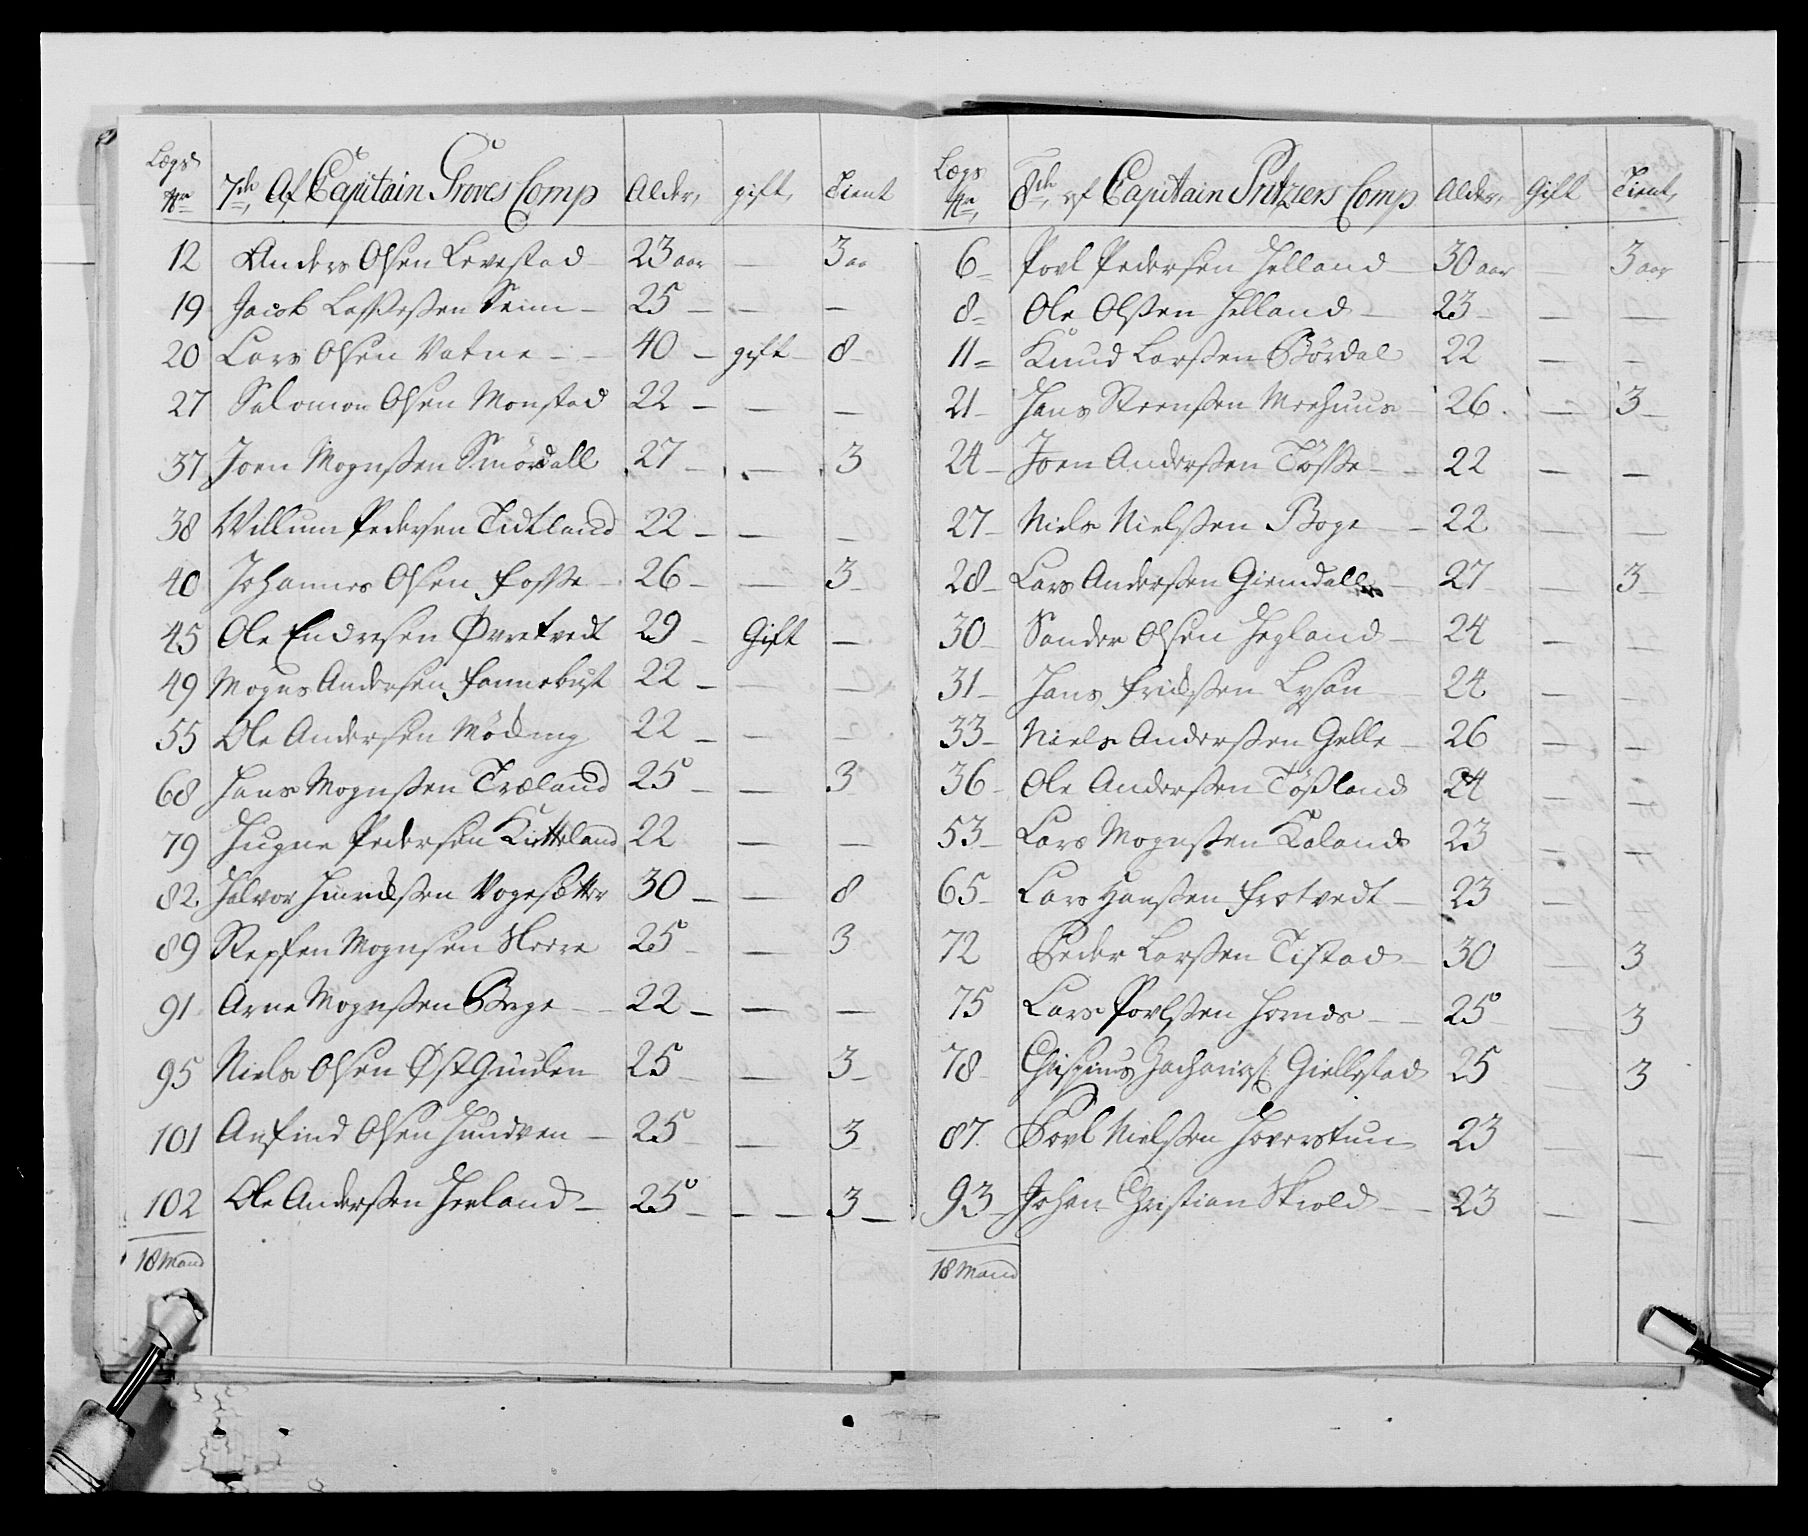 Lægs No 7de, Af Capitain Groves Comp Alder, gift, Tient
12 Anders Olsen Levestad 23 aar — 3 aa
19 Jacob Lassesen Seim — 25 — — —
20 Lars Olsen Vatne — 40 — gift — 8 —
27 Salomon Olsen Monstad 22 — — —
37 Joen Mognssen Smördall 27 — — 3
38 Willum Pedersen Tidtland 22 — — —
40 Johannes Olsen Fosse — 26 — — 3 —
45 Ole Endresen Øvretvedt 29 — Gift —
49 Mogns Andersen Fannebust 22 — — —
55 Ole Andersen Möding 22 — — —
68 Hans Mognssen Træland 25 — — 3
79 Hugne Pedersen Kietteland 22 — —
82. Halvor Hinrichssen Vogesetter 30 — — 8
89 Steffen Mognsen 25 — — 3
91 Arne Mognssen Berge — 22 — — —
95 Niels Olsen Øst Giulen 25 — — 3 —
101 Anfind Olsen Hundven — 25 — — 3 —
102 Ole Anderssen Herland — 25 — — — 3 —
18 Mand
Lægs No, 8de, af Capitain Pritziers Comp Alder, Gift Tient,
6 — Povl Pedersen Helland — 30 aar — 3 aar
8 — Ole Olssen Helland — 23 — — —
11 = Knud Larssen Børdal 22 — —
21 — Hans Steenssen Meehuus — 26. — 3 —
24 — Joen Anderssen Tösse — 22 — —
27 — Niels Nielssen Boge — 22 — —
28 — Lars Anderssen Giemdall — 27 — — 3 —
30 — Sander Olsen Hegland — 24 — —
31 — Hans Fridssen Lysøn — 24 — —
33 — Niels Anderssen Gelle — 26 — —
36 — Ole Anderssen Tössland 24 — —
53 — Lars Mognssen Kaland 23 — —
65 — Lars Hanssen Frotvedt — 23 — —
72 Peder Larssen Tistad — 30 — 3
75 Lars Povlssen — 25 — — 3
78 — Zacharias: Giellestad 25 — 3
87. Povl Nielssen Hoverstun 23 — —
93 — Johan Christian Skiold — 23 — —
18 Mand